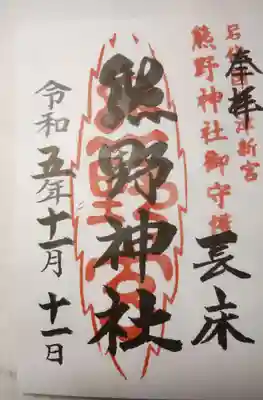 奉拝
津新宮
熊野神社御守
長床
熊野神社
令和五年十一月十一日